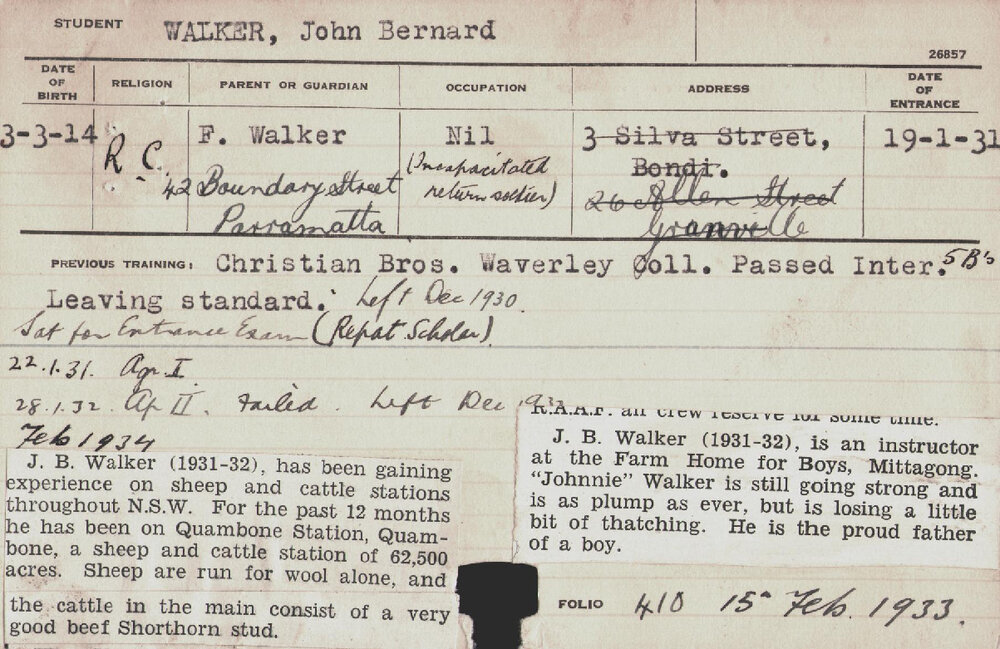 STUDENT WALKER, John Bernard
26857
DATE OF BIRTH RELIGION PARENT OR GUARDIAN OCCUPATION ADDRESS DATE OF ENTRANCE
3-3-14 R.C. F. Walker Nil 3 Silva Street, 19-1-31
(Incapacitated Bondi.
42 Boundary Street return soldier) 26 Allen Street
Parramatta Granville
PREVIOUS TRAINING: Christian Bros. Waverley Coll. Passed Inter. 5B's
Leaving standard. Left Dec 1930.
Sat for Entrance Exam (Repat. Scholar)
22.1.31. Agr I.
28.1.32. Ag II. Failed. Left Dec 1932
Feb 1934
J. B. Walker (1931-32), has been gaining
experience on sheep and cattle stations
throughout N.S.W. For the past 12 months
he has been on Quambone Station, Quam-
bone, a sheep and cattle station of 62,500
acres. Sheep are run for wool alone, and
the cattle in the main consist of a very
good beef Shorthorn stud.
R.A.A.F. air crew reserve for some time.
J. B. Walker (1931-32), is an instructor
at the Farm Home for Boys, Mittagong.
"Johnnie" Walker is still going strong and
is as plump as ever, but is losing a little
bit of thatching. He is the proud father
of a boy.
FOLIO 410 15 Feb. 1933.